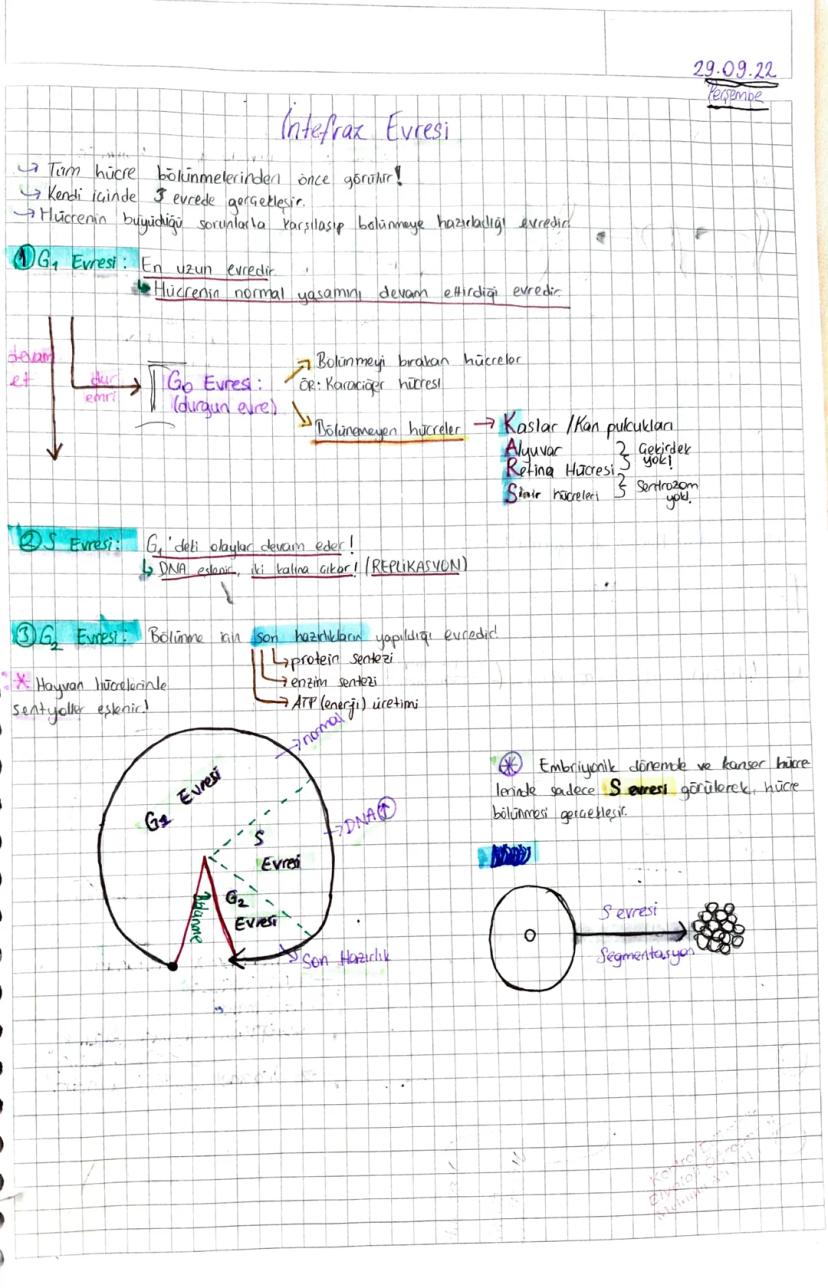 29.09.22
Perşembe
İntefraz Evresi
→ Tüm hücre bölünmelerinden önce görülür!
→ Kendi içinde 3 evrede gerçekleşir.
→ Hücrenin büyüdüğü sorunlarla karşılaşıp bölünmeye hazırladığı evredir.
① G₁ Evresi: En uzun evredir.
↳ Hücrenin normal yaşamını devam ettirdiği evredir.
devam et
dur emri
G₀ Evresi:
(durgun evre)
Bölünmeyi bırakan hücreler
ÖR: Karaciğer hücresi
Bölünemeyen hücreler → Kaslar / Kan pulcukları
Alyuvar
Retina Hücresi
} Çekirdek yok!
Sinir hücreleri } Sentrozom yok!
② S Evresi: G₁'deki olaylar devam eder!
↳ DNA eşlenir, iki katına çıkar! (REPLİKASYON)
③ G₂ Evresi: Bölünme için son hazırlıkların yapıldığı evredir.
↳ protein sentezi
→ enzim sentezi
→ ATP (enerji) üretimi
* Hayvan hücrelerinde
sentroller eşlenir!
→ normal
G₁ Evresi
S
Evresi
→ DNA ↑
G₂
Evresi
Bölünme
Son Hazırlık
* Embriyonik dönemde ve kanser hücre
lerinde sadece S evresi görülerek, hücre
bölünmesi gerçekleşir.
S evresi
Segmentasyon